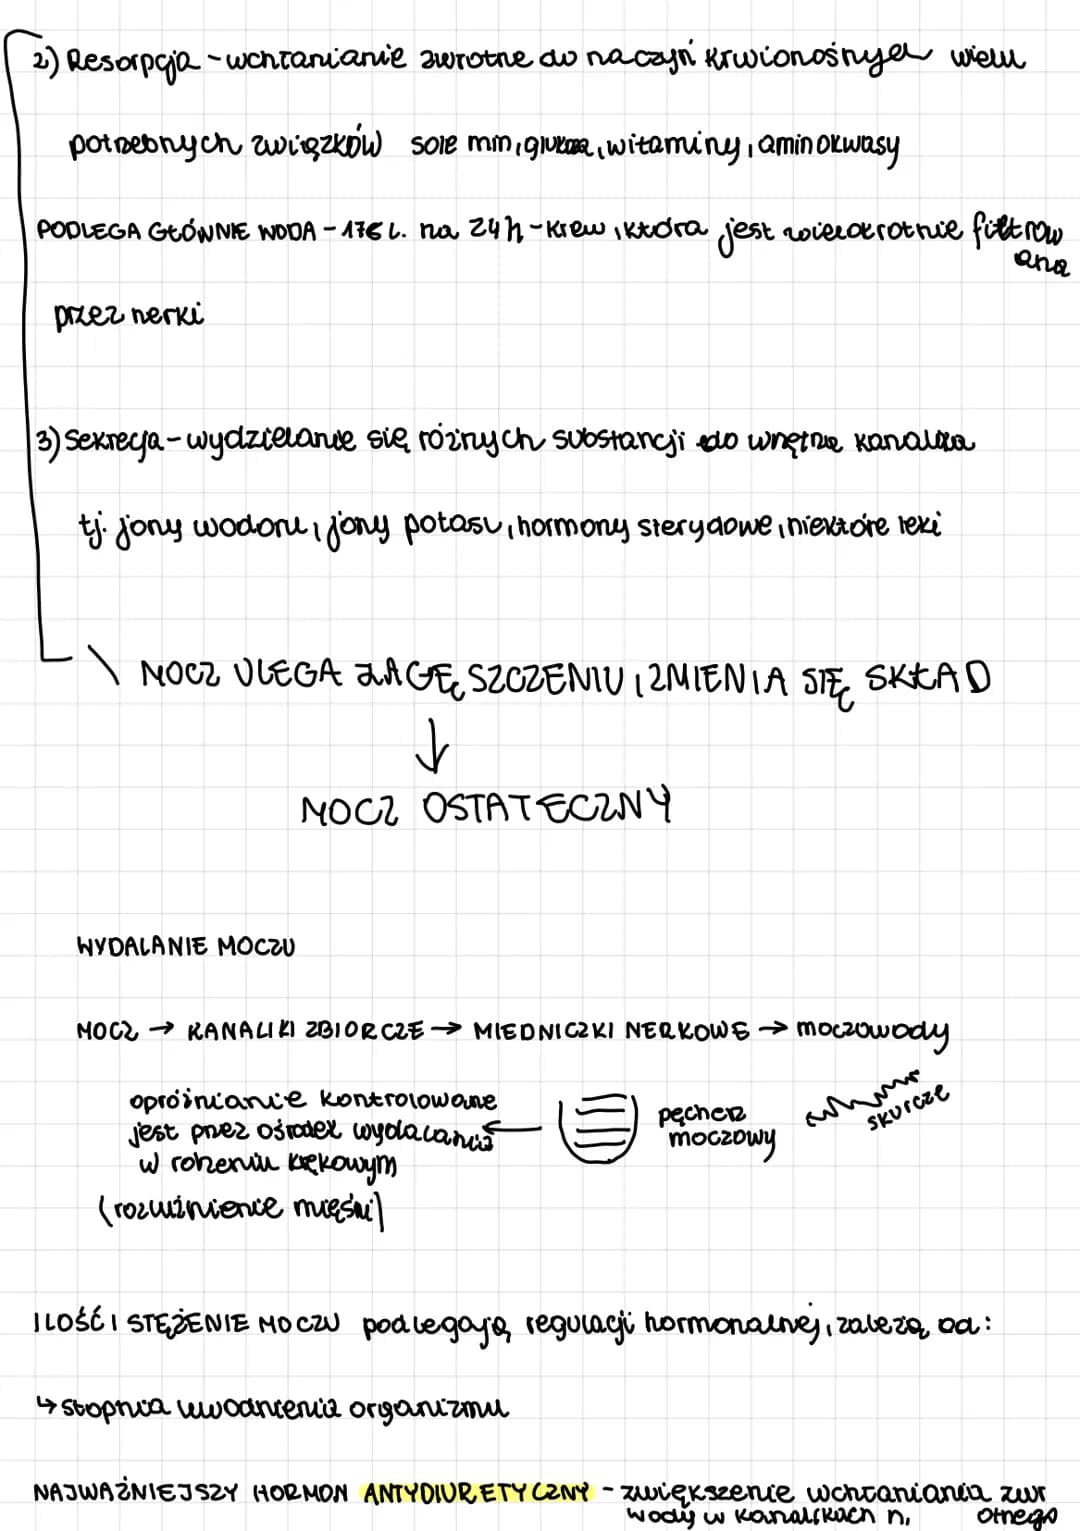 2) Resorpcja - wchłanianie zwrotne do naczyń krwionośnych wielu
potrzebnych związków sole min, glukoza, witaminy, aminokwasy
PODLEGA GŁÓWNIE WODA - 176 L. na 24h - krew, która jest wielokrotnie filtrow
ana
przez nerki
3) Sekrecja - wydzielanie się różnych substancji do wnętrza kanalika
tj. jony wodoru, jony potasu, hormony sterydowe, niektóre leki
MOCZ ULEGA ZAGĘSZCZENIU, ZMIENIA SIĘ SKŁAD
↓
MOCZ OSTATECZNY
WYDALANIE MOCZU
MOCZ → KANALIKI ZBIORCZE → MIEDNICZKI NERKOWE → moczowody
skurcze
pęcherz
moczowy
opróżnianie kontrolowane
jest przez ośrodek wydalania
w rdzeniu kręgowym
(rozluźnienie mięśni)
ILOŚĆ I STĘŻENIE MOCZU podlegają regulacji hormonalnej, zależą od:
↳ stopnia uwodnienia organizmu
NAJWAŻNIEJSZY HORMON ANTYDIURETYCZNY - zwiększenie wchłaniania zwr
otnego
wody w kanalikach n.